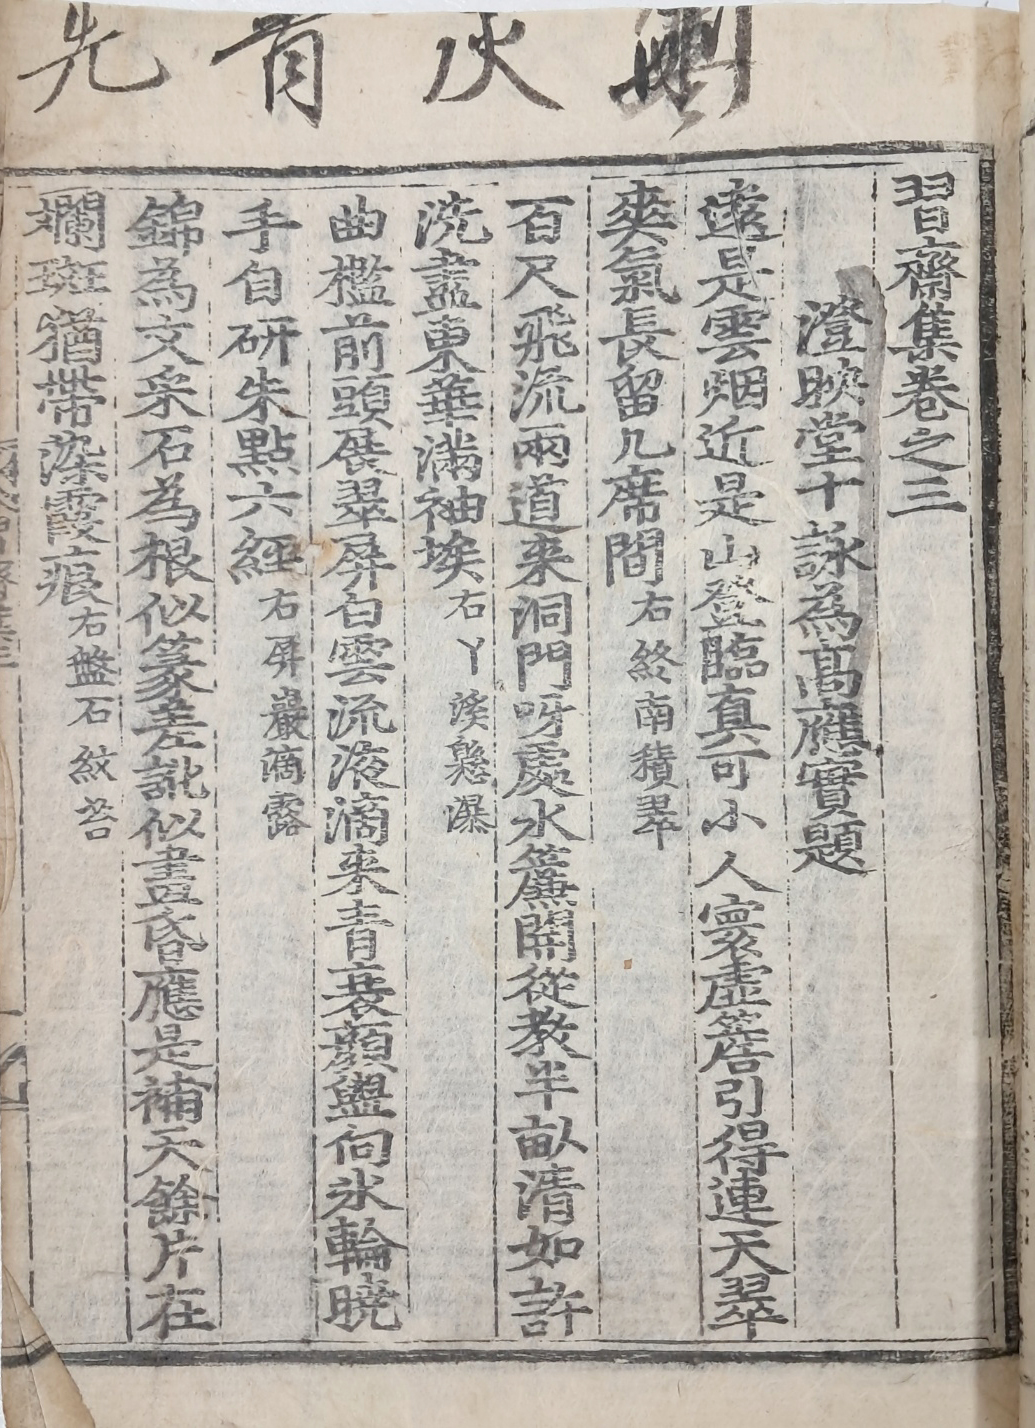 灰首先
習齋集卷之三
澄映堂十詠為高應實題
遠是雲烟近是山登臨真可小人寰虛簷引得連天翠
爽氣長留几席間右終南積翠
百尺飛流兩道来洞門呀處水簾開從教半畝清如許
洗盡東華滿袖埃右丫溪懸瀑
曲檻前頭展翠屏白雲流液滴來青衰顔盥向氷輪曉
手自研朱點六経右屏巖滴露
錦為文采石為根似篆差訛似畫昏應是補天餘片在
斕斑猶帶染霞痕右盤石紋苔